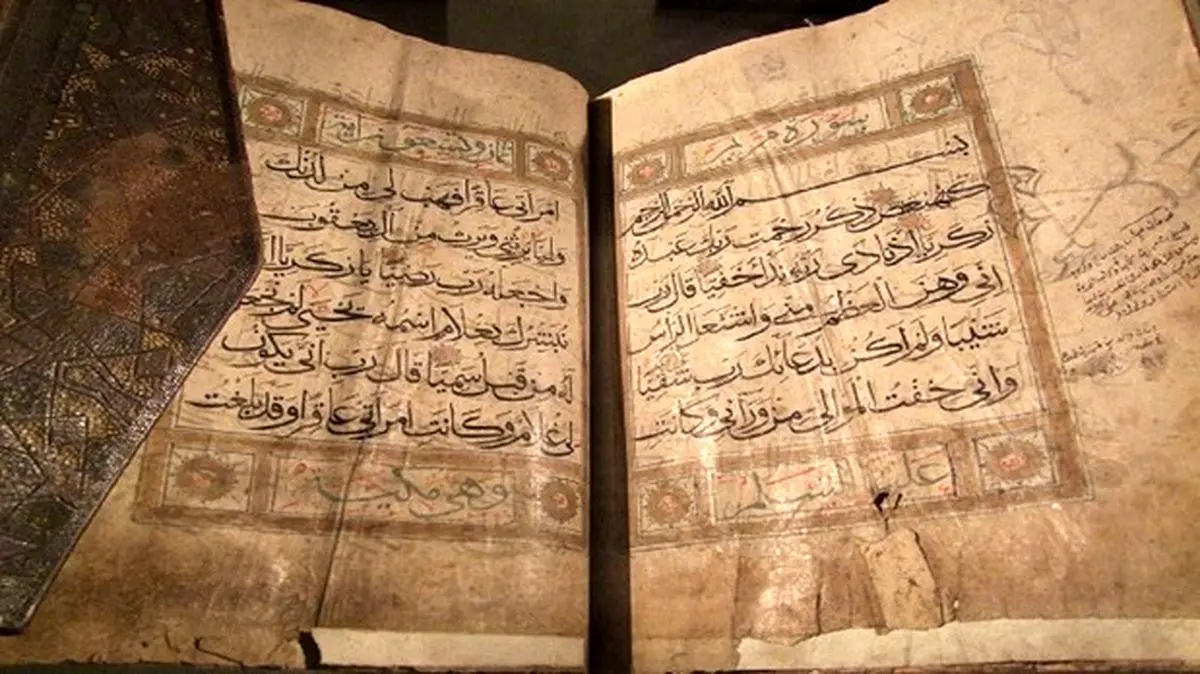 سورة مريم
بسم الله الرحمن الرحيم
كهيعص ذكر رحمت ربك عبده
زكريا اذ نادى ربه نداء خفيا قال رب
اني وهن العظم مني واشتعل الراس
شيبا ولم اكن بدعائك رب شقيا
واني خفت الموالى من ورآئي وكانت
السلم
امراتي عاقرا فهب لي من لدنك
وليا يرثني ويرث من آل يعقوب
واجعله رب رضيا يا زكريا انا
نبشرك بغلام اسمه يحيى لم نجعل
له من قبل سميا قال رب انى يكون
لي غلام وكانت امراتي عاقرا وقد بلغت
وهي مكية